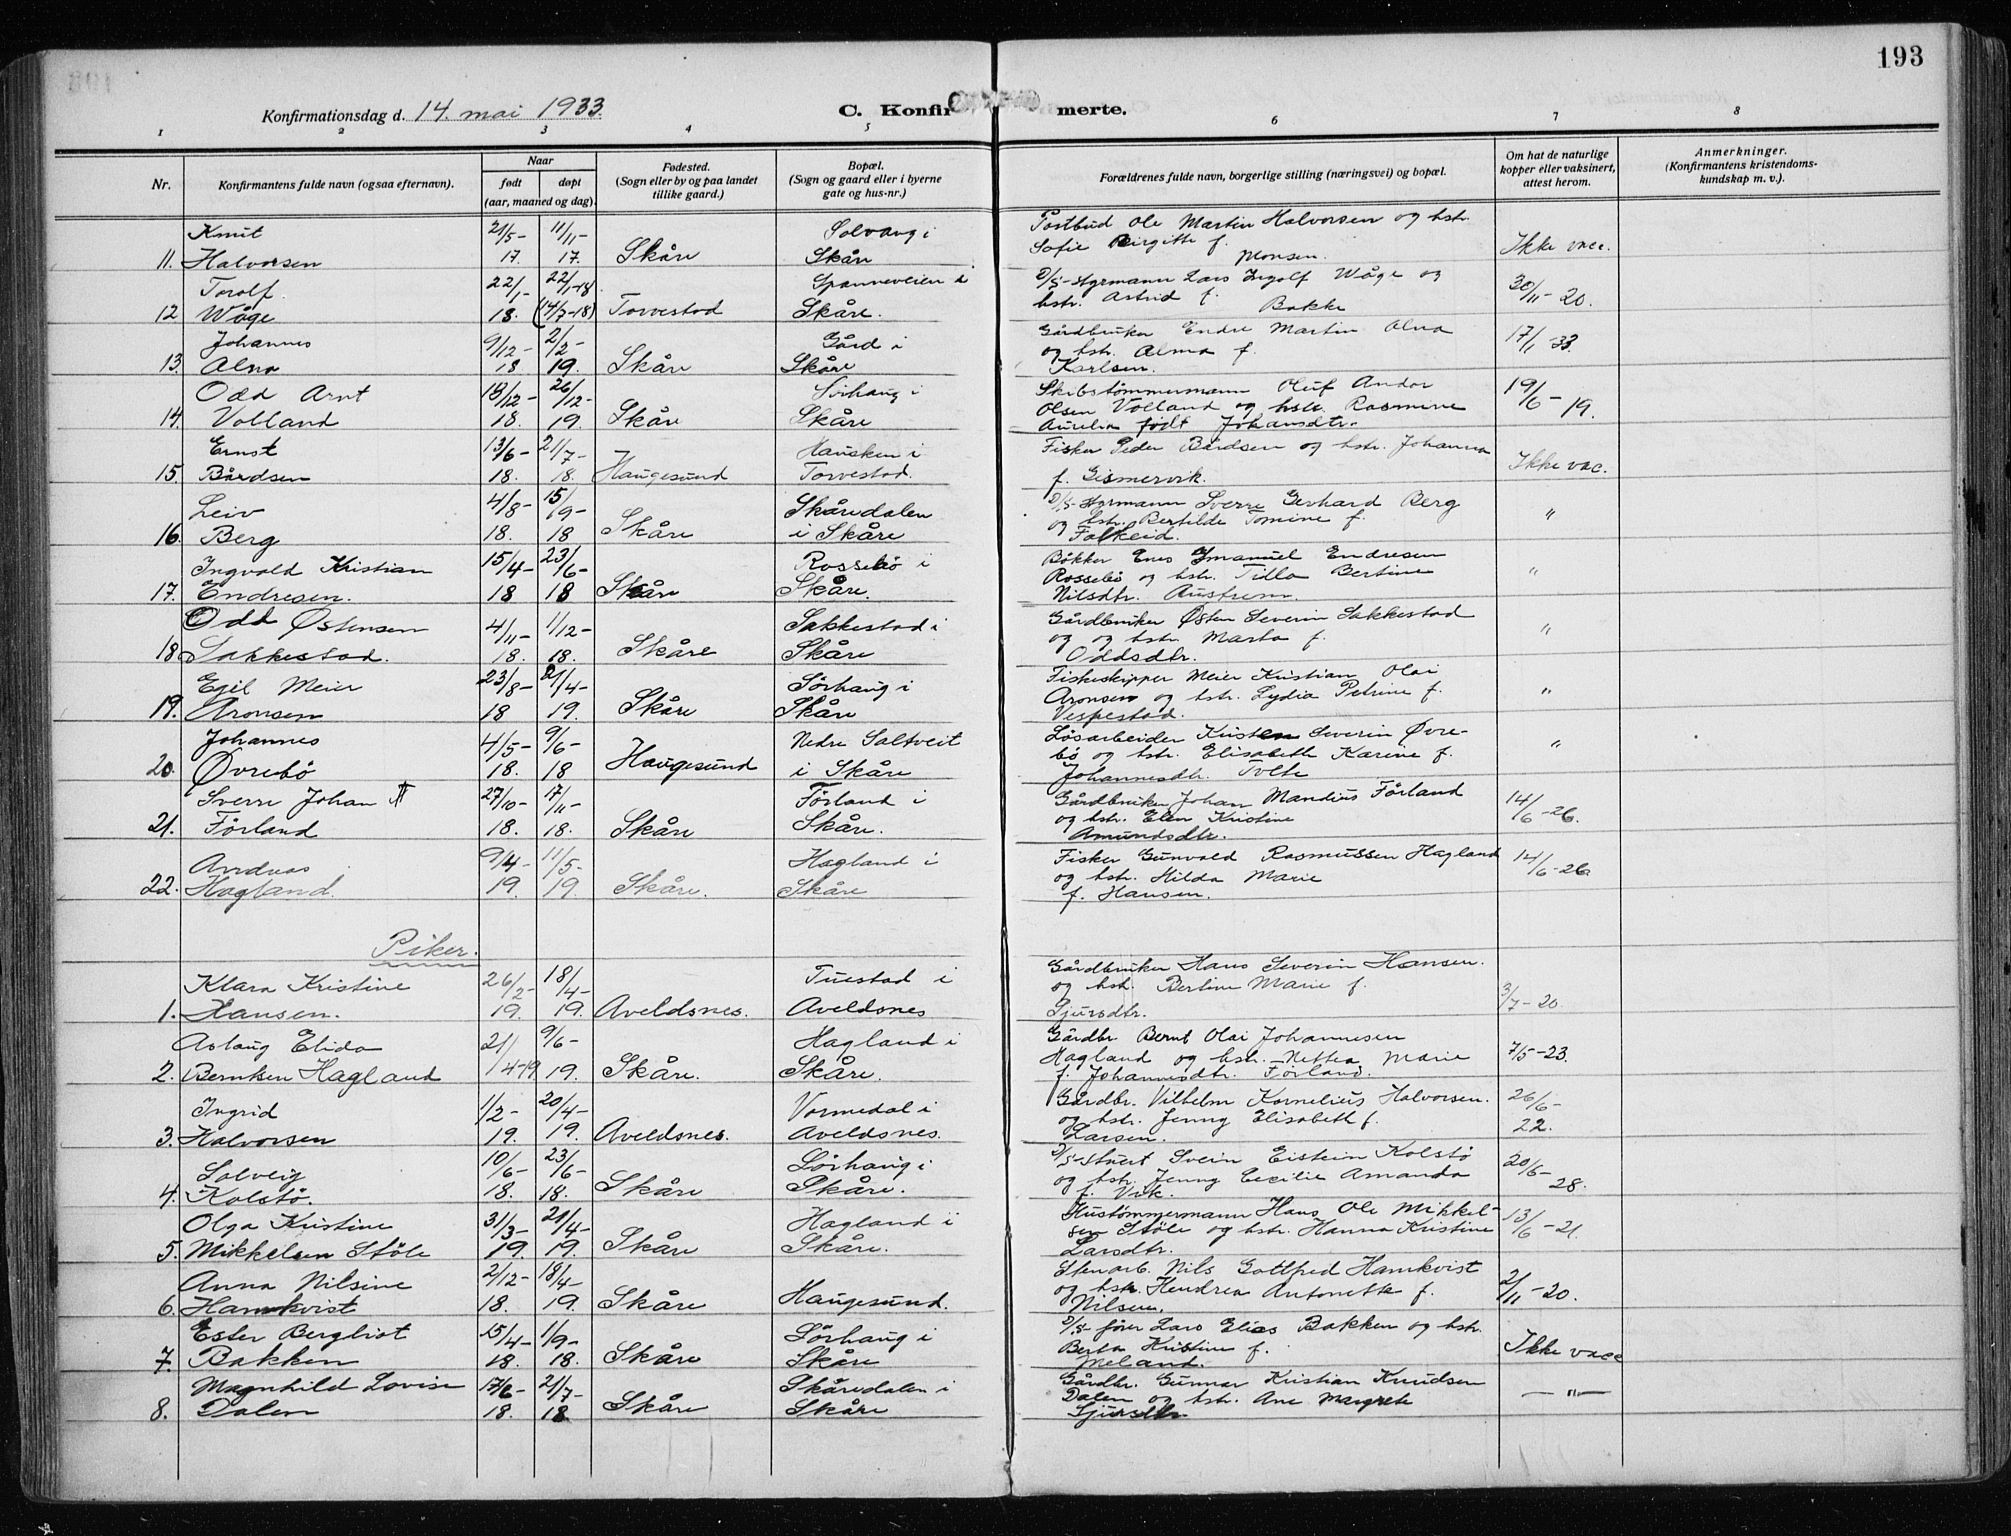 193
Konfirmationsdag d. 14. mai 1933.
C. Konfir merte.
1 2 3 4 5 6 7 8
Nr.
Konfirmantens fulde navn (ogsaa efternavn).
Naar
født
døpt
(aar, maaned og dag).
Fødested.
(Sogn eller by og paa landet
tillike gaard.)
Bopæl.
(Sogn og gaard eller i byerne
gate og hus-nr.)
Forældrenes fulde navn, borgerlige stilling (næringsvei) og bopæl.
Om hat de naturlige
kopper eller vaksinert,
attest herom.
Anmerkninger.
(Konfirmantens kristendoms-
kundskap m. v.).
Knut 21/5- 11/11- Solvang i Postbud Ole Martin Halvorsen og hstr.
11. Halvorsen 17. 17. Skåre Skåre Sofie Birgitte f. Monsen. Ikke vacc.
Torolf 22/1- 22/1-18. Spanneveien i D/S-styrmann Lars Ingolf Våge og
12 Våge 18. (14/7-18) Torvestad Skåre. hstr. Astrid f. Bakke 30/11-20.
Johannes 9/12- 2/2- Gård i Gårdbruker Endre Martin Alna
13. Alna 18 19. Skåre Skåre og hstr. Alma f. Karlsen. 17/1-33.
Odd Arnt 18/12- 26/12- Sörhaug i Skibstømmermann Oluf Andor
14. Volland 18. 19. Skåre Skåre Olsen Volland og hstr. Rasmine Aurelia født Johansdtr. 19/6-19.
Ernst 13/6- 21/7- Hausken i Fisker Peder Bårdsen og hstr. Johanna
15. Bårdsen 18. 18. Haugesund Torvestad. f. Gismervik. Ikke vac.
Leiv 4/8- 15/9- Skåredalen D/S-styrmann Sverre Gerhard Berg
16. Berg 18. 18 Skåre i Skåre og hstr. Bertilde Tomine f. Falkeid. "
Ingvald Kristian 15/4- 23/6- Rossebö i Bøkker Enes Imanuel Endresen
17. Endresen. 18 18 Skåre Skåre. Rossebö og hstr. Tilla Bertine Nilsdtr. Austrem. "
Odd Østensen 4/11- 11/12- Sakkestad i Gårdbruker Østen Severin Sakkestad
18 Sakkestad. 18. 18. Skåre Skåre og og hstr. Marta f. Oddsdtr. "
Egil Meier 23/8- 21/4- Sörhaug i Fiskeskipper Meier Kristian Olai
19. Aronsen 18 19. Skåre Skåre Aronsen og hstr. Lydia Petrine f. Vespestad. "
Johannes 4/5- 9/6- Nedre Saltveit Løsarbeider Kristen Severin Øvre-
20. Øvrebö 18. 18 Haugesund i Skåre bö og hstr. Elisabeth Karine f. Johannesdtr. Tvete "
Sverre Johan 27/10- 17/11- Förland i Gårdbruker Johan Mandius Förland
21. Förland 18. 18. Skåre Skåre. og hstr. Elen Kristine Amundsdtr. 14/6-26.
Andreas 9/4- 11/5- Hagland i Fisker Gunvald Rasmussen Hagland
22. Hagland. 19. 19. Skåre. Skåre og hstr. Hilda Marie f. Hansen. 14/6-26
Piker.
Klara Kristine 26/2- 18/4- Tuestad i Gårdbruker Hans Severin Hansen.
1. Hansen. 19. 19. Aveldsnes. Aveldsnes og hstr. Bertine Marie f. Sjursdtr. 3/7-20.
Aslaug Elida 21/ 9/6- Hagland i Gårdbr Bernt Olai Johannesen
2. Berntsen Hagland 4-19 19. Skåre. Skåre. Hagland og hstr. Nettea Marie f. Johannesdtr. Förland. 7/5-23.
Ingrid 1/2- 20/4- Vormedal i Gårdbr. Vilhelm Kornelius Halvorsen.
3. Halvorsen 19. 19. Aveldsnes. Aveldsnes. og hstr. Jenny Elisabeth f. Larsen. 26/6-22.
Solveig 10/6- 23/6- Sörhaug i D/S-stuert Svein Eistein Kolstö
4. Kolstö. 18. 18. Skåre Skåre. og hstr. Jenny Cecilie Amanda f. Vik. 20/6-28.
Olga Kristine 31/3- 21/4- Hagland i Hustømmermann Hans Ole Mikkel-
5. Mikkelsen Stöle 19. 19. Skåre Skåre. sen Stöle og hstr. Hanna Kristine Larsdtr. 13/6-21.
Anna Nilsine 2/12- 18/4- Stenarb. Nils Gottfred Hamkvist
6. Hamkvist 18. 19. Skåre Haugesund. og hstr. Hendrea Antonette f. Nilsen. 2/11-20.
Ester Bergliot 15/4- 1/9- Sörhaug i D/S-fører Lars Elias Bakken og hstr.
7. Bakken 18. 18. Skåre Skåre Berta Kristine f. Meland. Ikke vacc
Magnhild Lovise 17/6- 21/7- Skåredalen i Gårdbr. Gunnar Kristian Knudsen
8. Dalen 18. 18 Skåre Skåre Dalen og hstr. Ane Margrete Sjursdtr. — " —